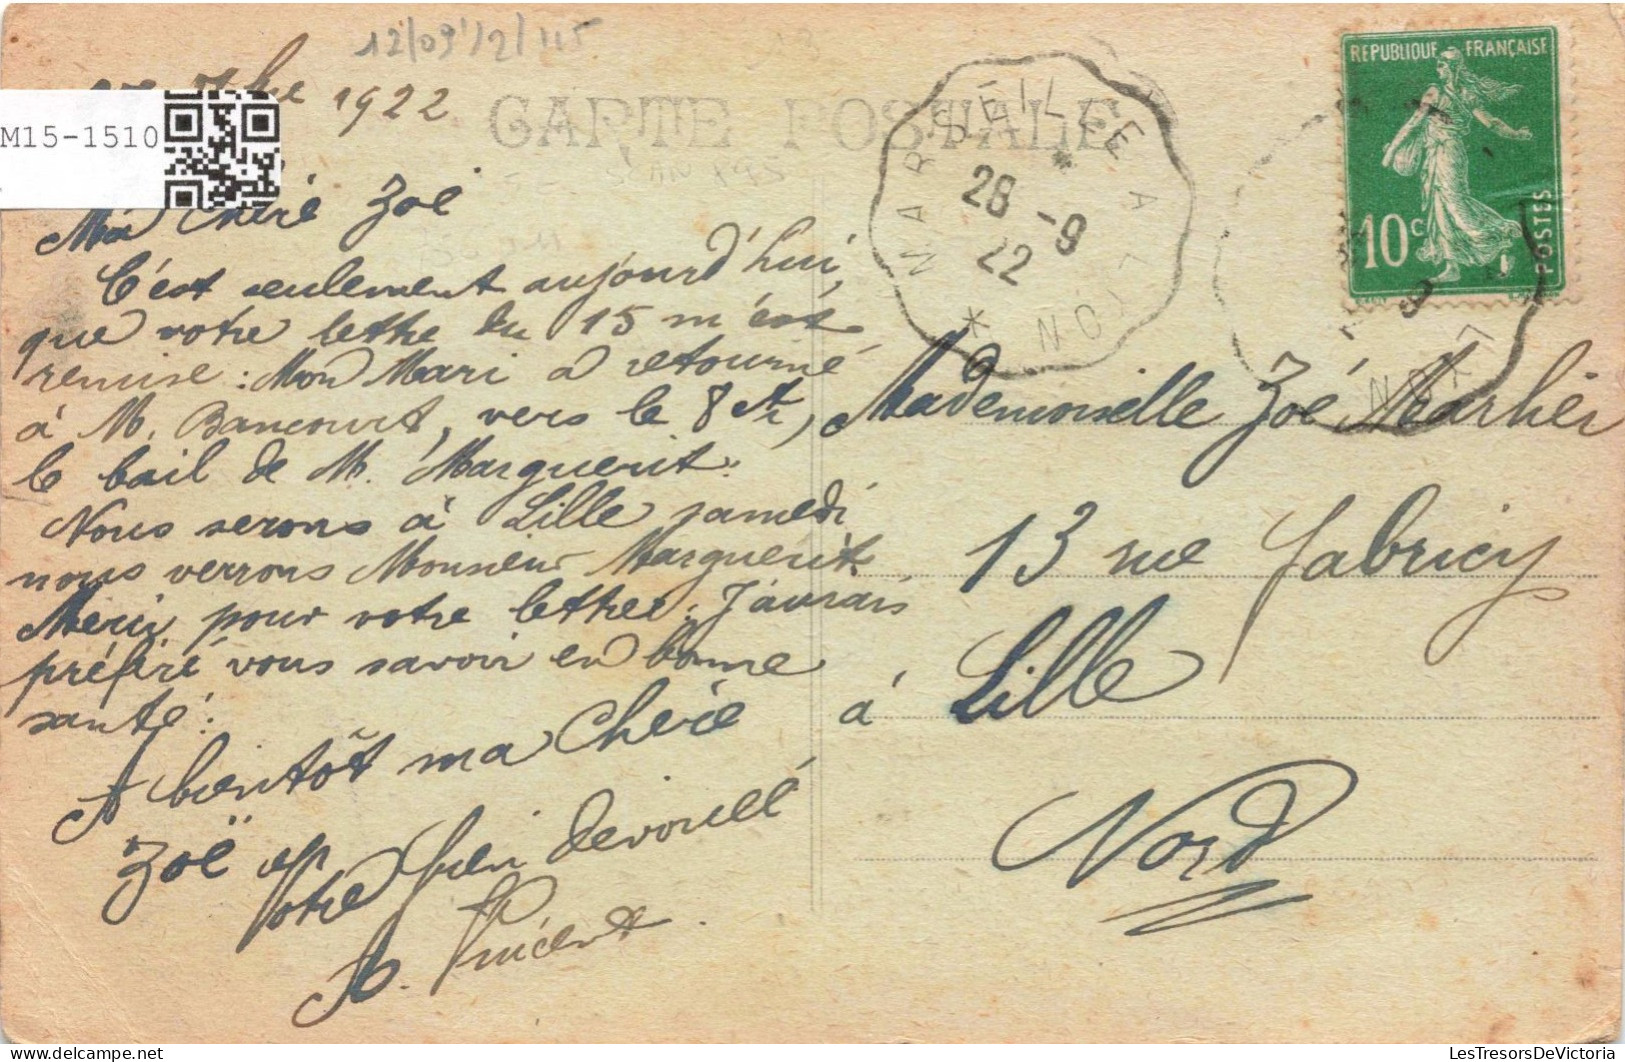 12/09/2/115
7bre 1922
M15-1510
CARTE POSTALE
Ma Chère Zoé
C'est seulement aujourd'hui,
que votre lettre du 15 m'est
remise : Mon Mari a retourné
à M. Bancourt, vers le 8 ct,
le bail de M. Marguerit.
Nous serons à Lille samedi
nous verrons Monsieur Marguerit.
Merci pour votre lettre. J'aurais
préféré vous savoir en bonne
santé.
A bientôt ma Chère
Zoë et
Votre bien dévouée
Vincent.
MARSEILLE A LYON
28 -9
22
REPUBLIQUE FRANÇAISE
10c
POSTES
Mademoiselle Zoé Marlier
13 rue Fabricy
à Lille
Nord
LesTresorsDeVictoria